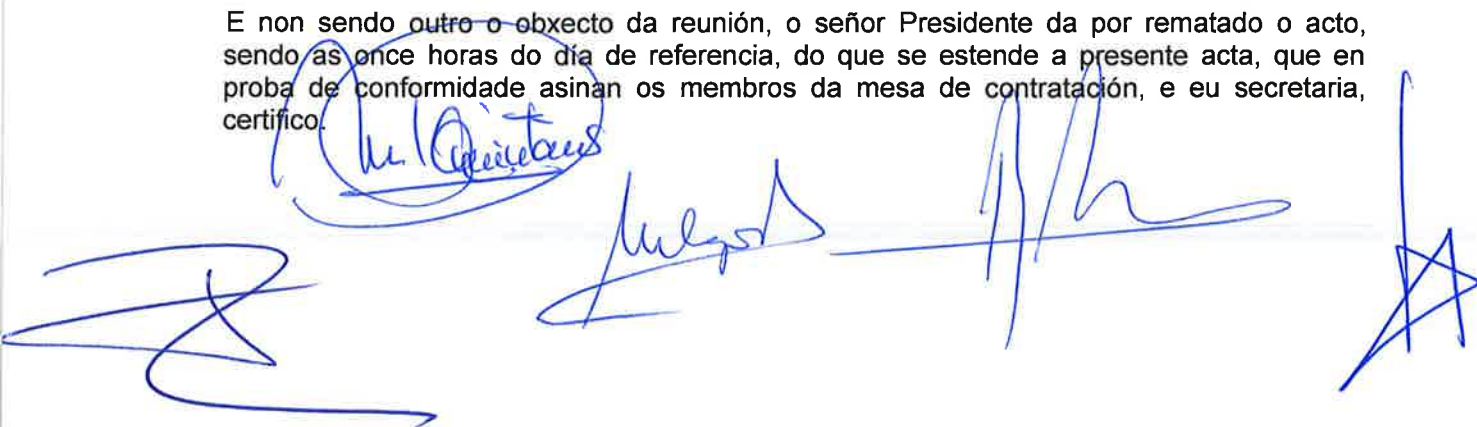 E non sendo outro o obxecto da reunión, o señor Presidente da por rematado o acto,
sendo as once horas do día de referencia, do que se estende a presente acta, que en
proba de conformidade asinan os membros da mesa de contratación, e eu secretaria,
certifico.